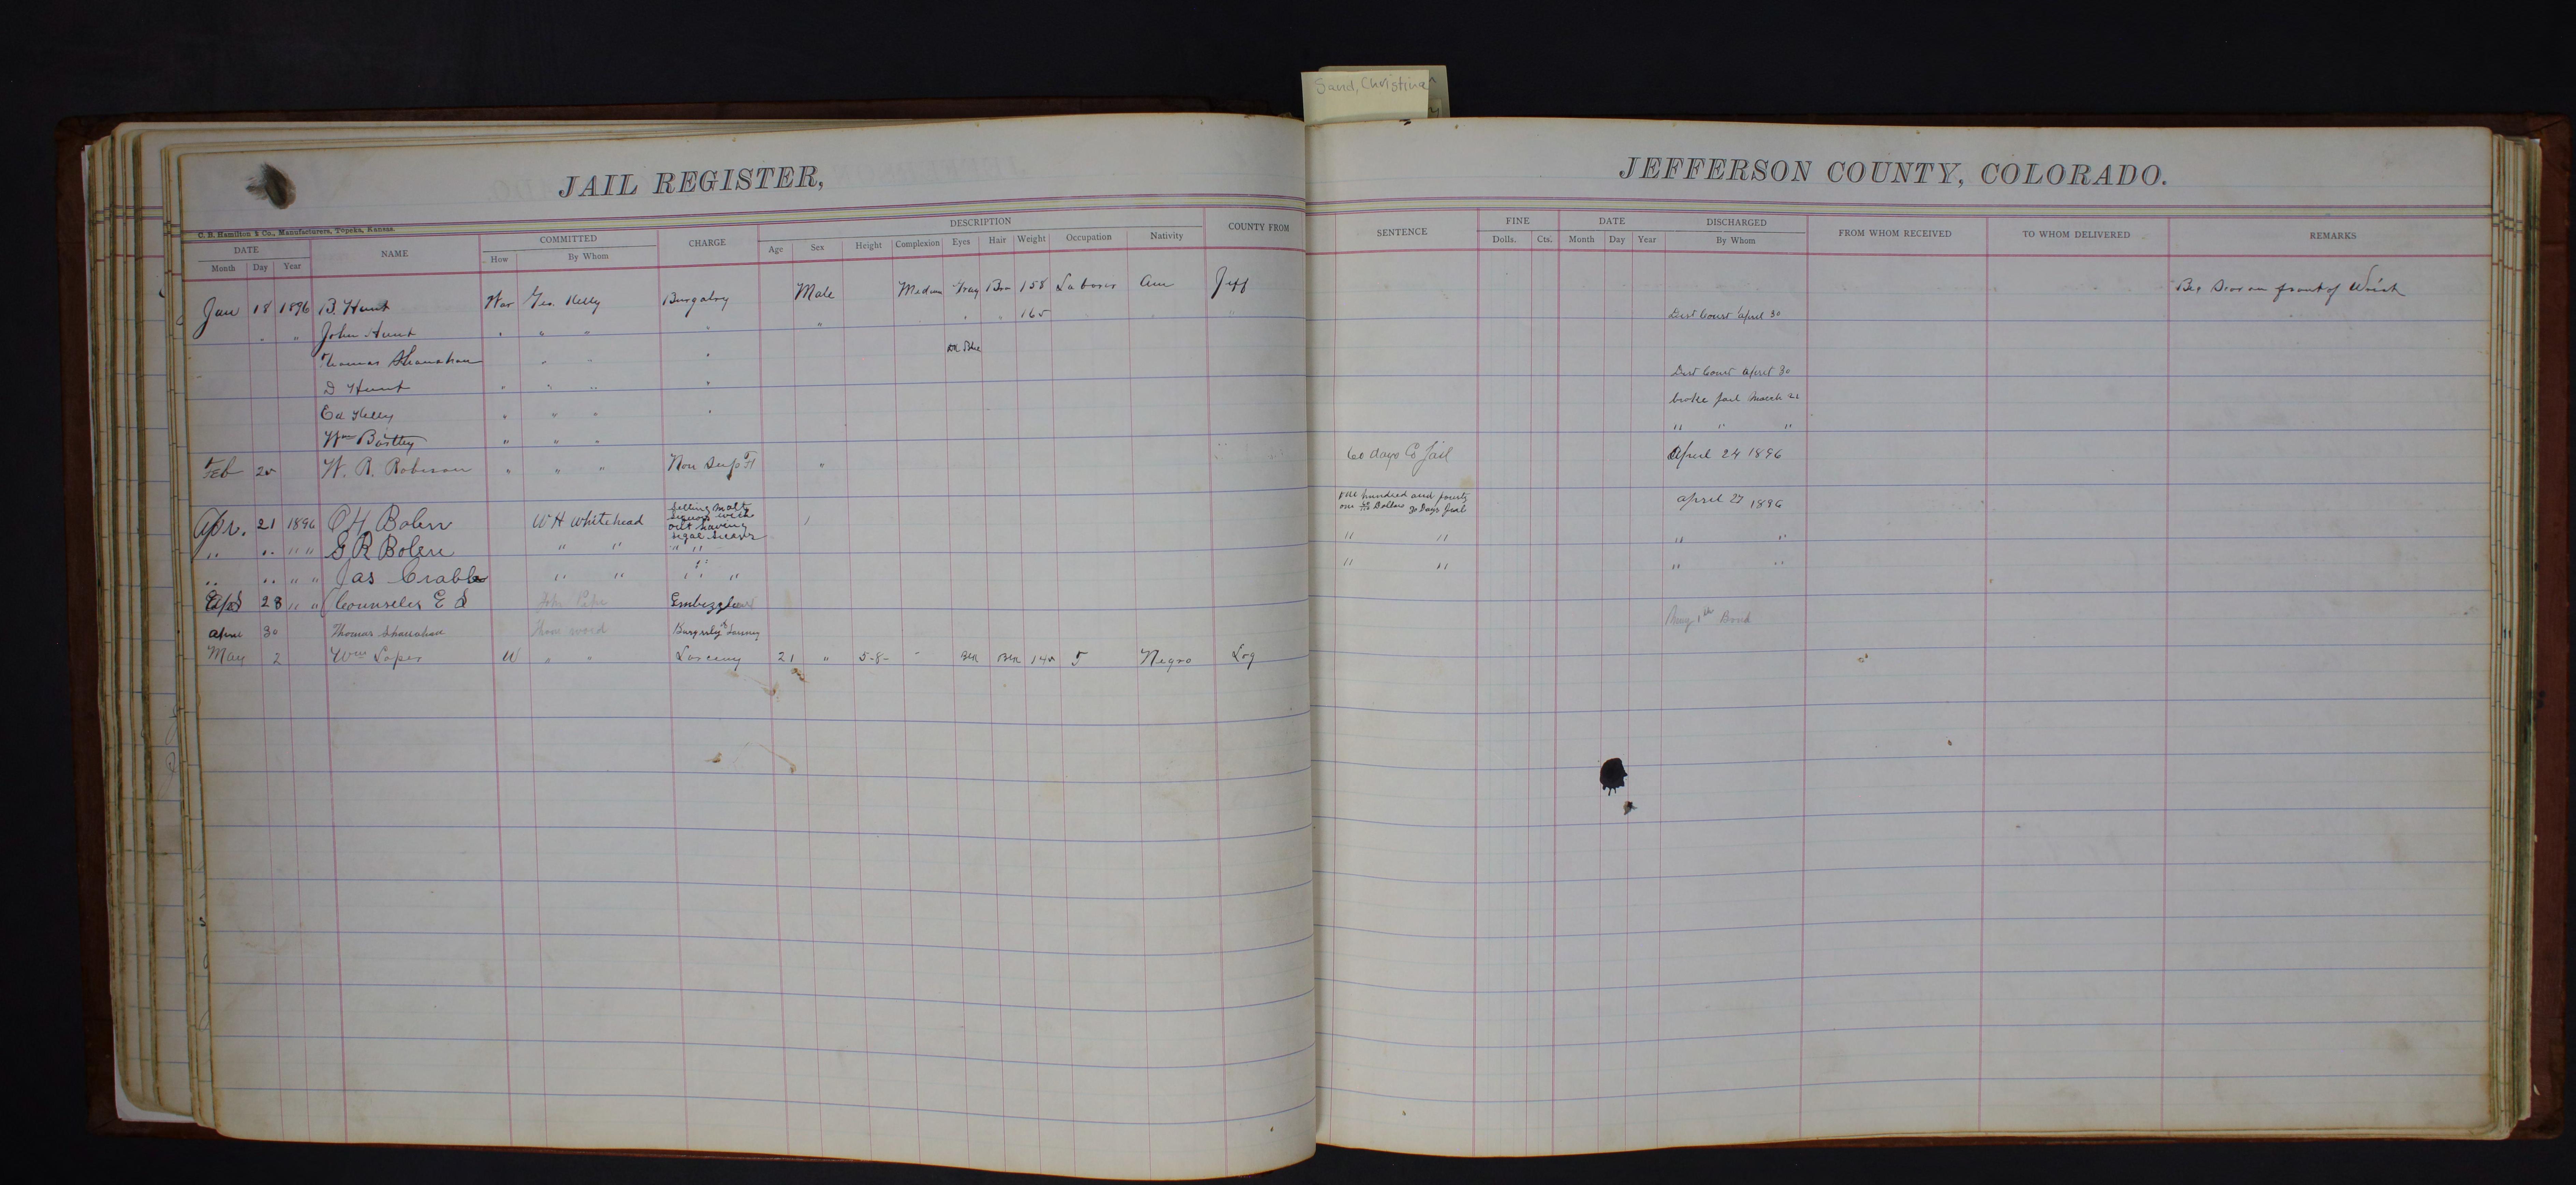 Sand, Christina
JAIL REGISTER,
JEFFERSON COUNTY, COLORADO.
C. B. Hamilton & Co., Manufacturers, Topeka, Kansas.
DATE NAME COMMITTED CHARGE DESCRIPTION COUNTY FROM SENTENCE FINE DATE DISCHARGED FROM WHOM RECEIVED TO WHOM DELIVERED REMARKS
Month Day Year How By Whom Age Sex Height Complexion Eyes Hair Weight Occupation Nativity Dolls. Cts. Month Day Year By Whom
Jan 18 1896 B. Hunt War Geo. Kelly Burgalry Male Medium Gray Bro 158 Laborer Am Jeff front of Wrist
" " John Hunt " " " " " " " 165 Dist Court April 30
Thomas Shanahan " " " Dk Blue
D Hunt " " " " Dist Court April 30
Ed Kelly " " " " broke jail March 21
Wm Bartley " " " " " "
Feb 25 W. R. Robinson " " " Non Supt " 60 days Co Jail April 24 1896
Apr. 21 1896 C H Bolen W H Whitehead selling malt liquor with out having legal license one hundred and fourty one Dollars 90 Days Jail april 27 1896
" " " " G R Bolen " " " " " " " "
" " " " Jas Crabb " " " " " " " "
Apr 28 " " Counseler E S John Embezzlement May 1st Bond
April 30 Thomas Shanahan Thom word Burgerly & Larceny
May 2 Wm Loper W " " Larceny 21 " 5-8- " Blk Blk 145 Negro Log